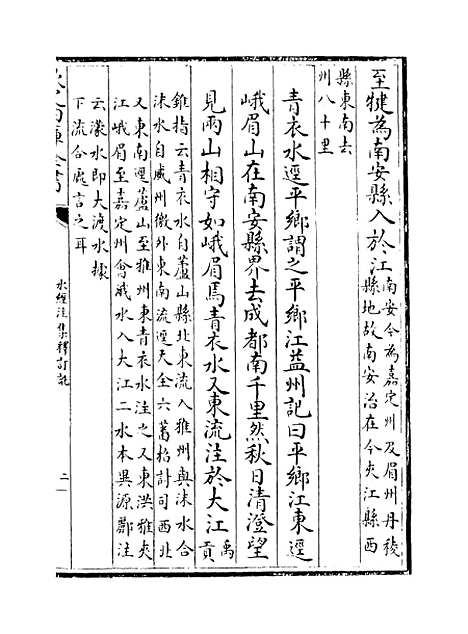 至犍為南安縣入於江南安今為嘉定州及眉州丹稜
縣地故南安治在今夾江縣西
縣東南去
州八十里
青衣水逕平鄉謂之平鄉江益州記曰平鄉江東逕
峨眉山在南安縣界去成都南千里然秋日清澄望
見兩山相守如峨眉焉青衣水又東流注於大江禹貢
錐指云青衣水自蘆山縣北東流入雅州與沬水合
沬水自威州徼外東南流逕天全六番招討司西北
又東南逕蘆山至雅州東青衣水注之又東洪雅夾
江峨眉至嘉定州會峨水入大江二水本異源酈注
云濛水即大渡水據
下流合處言之耳
水經注集釋訂訛